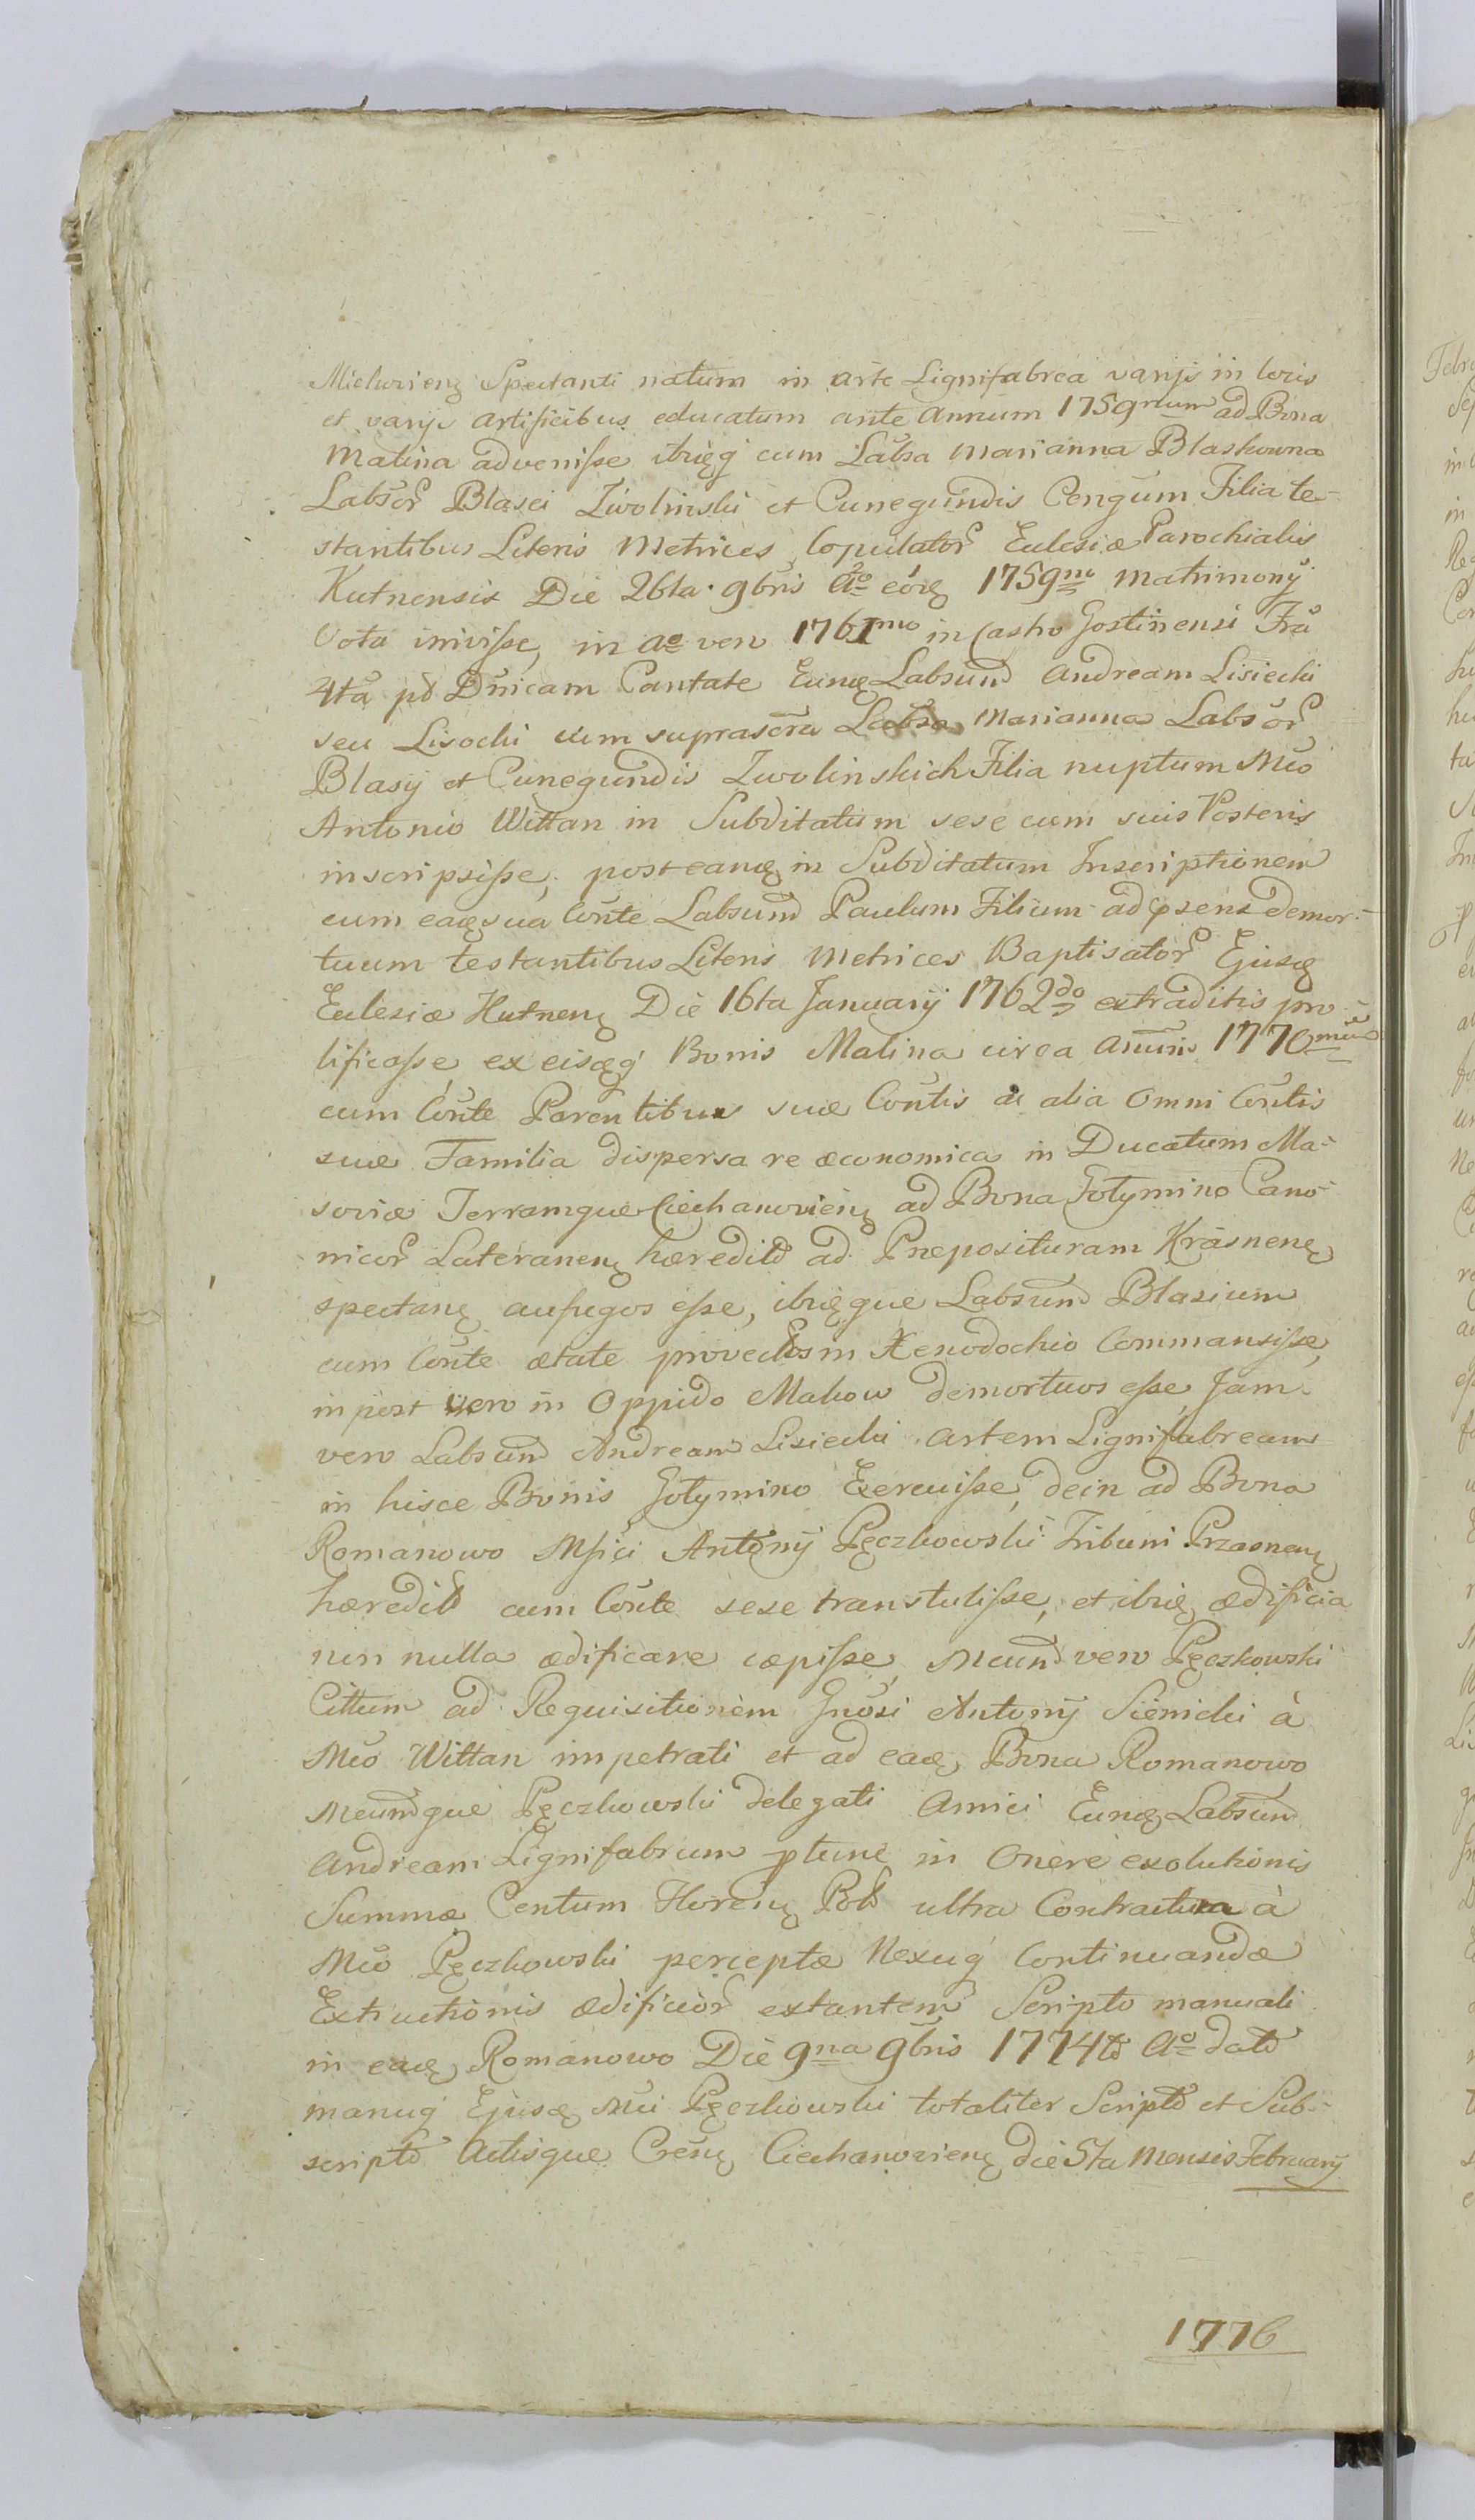 Mielnicieng Spectanti natum in arte Lignifabrea varijs in locis
et varijs artificibus educatum ante Annum 1759num ad Bona
Malina advenisse ibidęq cum Labsa Marianna Blaskowna
Labsor Blasei Zwolinski et Cunegundis Congum Filia te-
stantibus Literis Metrices Copulator Eclesiæ Parochialis
Kutnensis Die 26ta 9bris Ao eorę 1759no Matrimonÿ
Vota inivisse, in ao vero 1761mo in Castro Gostinensi Fra
4ta pd Dnicam Cantate Eunę Labsund Andream Lisiecki
seu Lisochi cum suprascra Labsa Marianna Labsor
Blasij et Cunegundis Zwolinskich Filia nuptum Mco
Antonio Wittan in Subditatum sese cum suis Posteris
inscripsisse, post eanę in Subditatum Inscriptionem
cum eaę sua Conte Labsund Paulum Filium ad psens demor-
tuum testantibus Literis Metrices Baptisator Ejusę
Eclesiæ Kutneng Die 16ta Januarij 1762do extraditis pro-
lificasse, ex eisęq Bonis Malina circa Annum 1770mum
cum Conte Parentibus suæ Contis ac alia Omni Contis
suæ Familia dispersa re œconomica in Ducatum Ma-
soviæ Terramque Ciechanovieng ad Bona Gotymino Cano-
nicor Lateraneng hæredit ad Præposituram Krasneng
spectang aufugos esse, ibidęque Labsund Blasium
cum Conte ætate provectos in Xenodochio Commansisse,
in post vero in Oppido Makow demortuos esse, Jam
vero Labsund Andream Lisiecki artem Lignifabream
in hisce Bonis Gotymino Exercuisse, dein ad Bona
Romanowo Msici Antonij Pęczkowski Tribuni Przasneng
hæredit cum Conte sese transtulisse, et ibidę ædificia
non nulla ædificare cœpisse, Mcund vero Pęczkowski
Cittum ad Requisitionem Gnosi Antonij Sienicki à
Mco Wittan impetrati et ad eaę Bona Romanowo
Mcundque Pęczkowski delegati Amici Eunę Labsund
Andream Lignifabrum ptunc in Onere exolutionis
Summæ Centum Floreng Pol ultra Contractum à
Mco Pęczkowski perceptæ Nexuq Continuandæ
Extructionis ædificior extantem Scripto manuali
in eaę Romanowo Die 9na 9bris 1774to Ao dato
manuq Ejusę Mci Pęczkowski totaliter Scripto et Sub-
scripto Actisque Creng Ciechanovieng die 5ta Mensis Februarij
1776